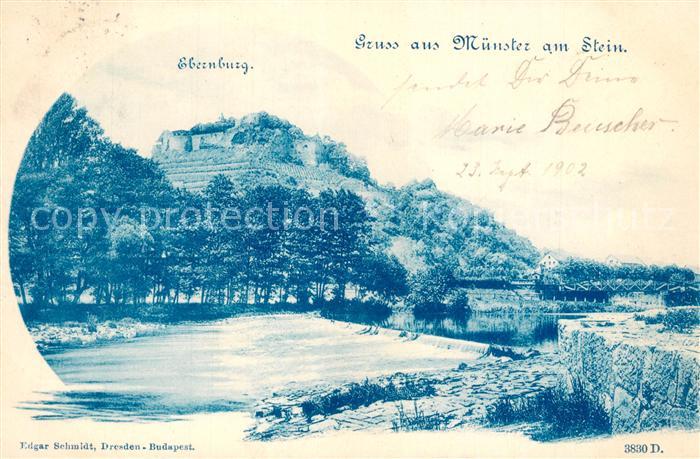 Gruss aus Münster am Stein.
Ebernburg.
sendet Dir Deine
Marie Beuscher.
23. Sept. 1902
copyright protection Kopierschutz
Edgar Schmidt, Dresden-Budapest.
3830 D.